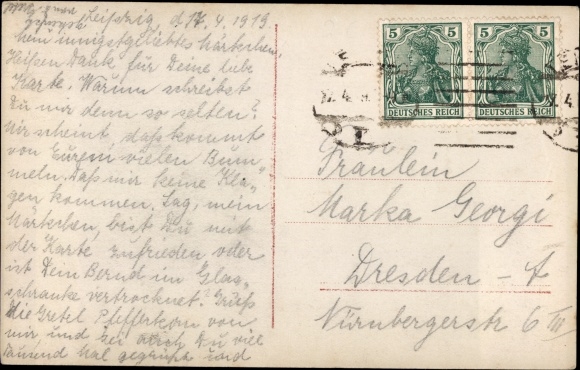 Leipzig, d. 17.4.1919
Mein innigstgeliebtes Märkchen,
Heißen Dank für Deine liebe
Karte. Warum schreibst
Du mir denn so selten?
Mir scheint, daß kommt
von Eurem vielen Bum"
meln. Daß mir keine Kla"
gen kommen. Sag, mein
Märkchen, bist Du mit
der Karte zufrieden oder
ist Dein Bernd im Glas"
schranke vertrocknet? Grüß
die Gretel Pfefferkorn von
mir und sei Du viel
tausend Mal gegrüßt und
5 5 5 5
DEUTSCHES REICH DEUTSCHES REICH
Fräulein
Marka Georgi
Dresden – A
Nürnbergerstr 6 III